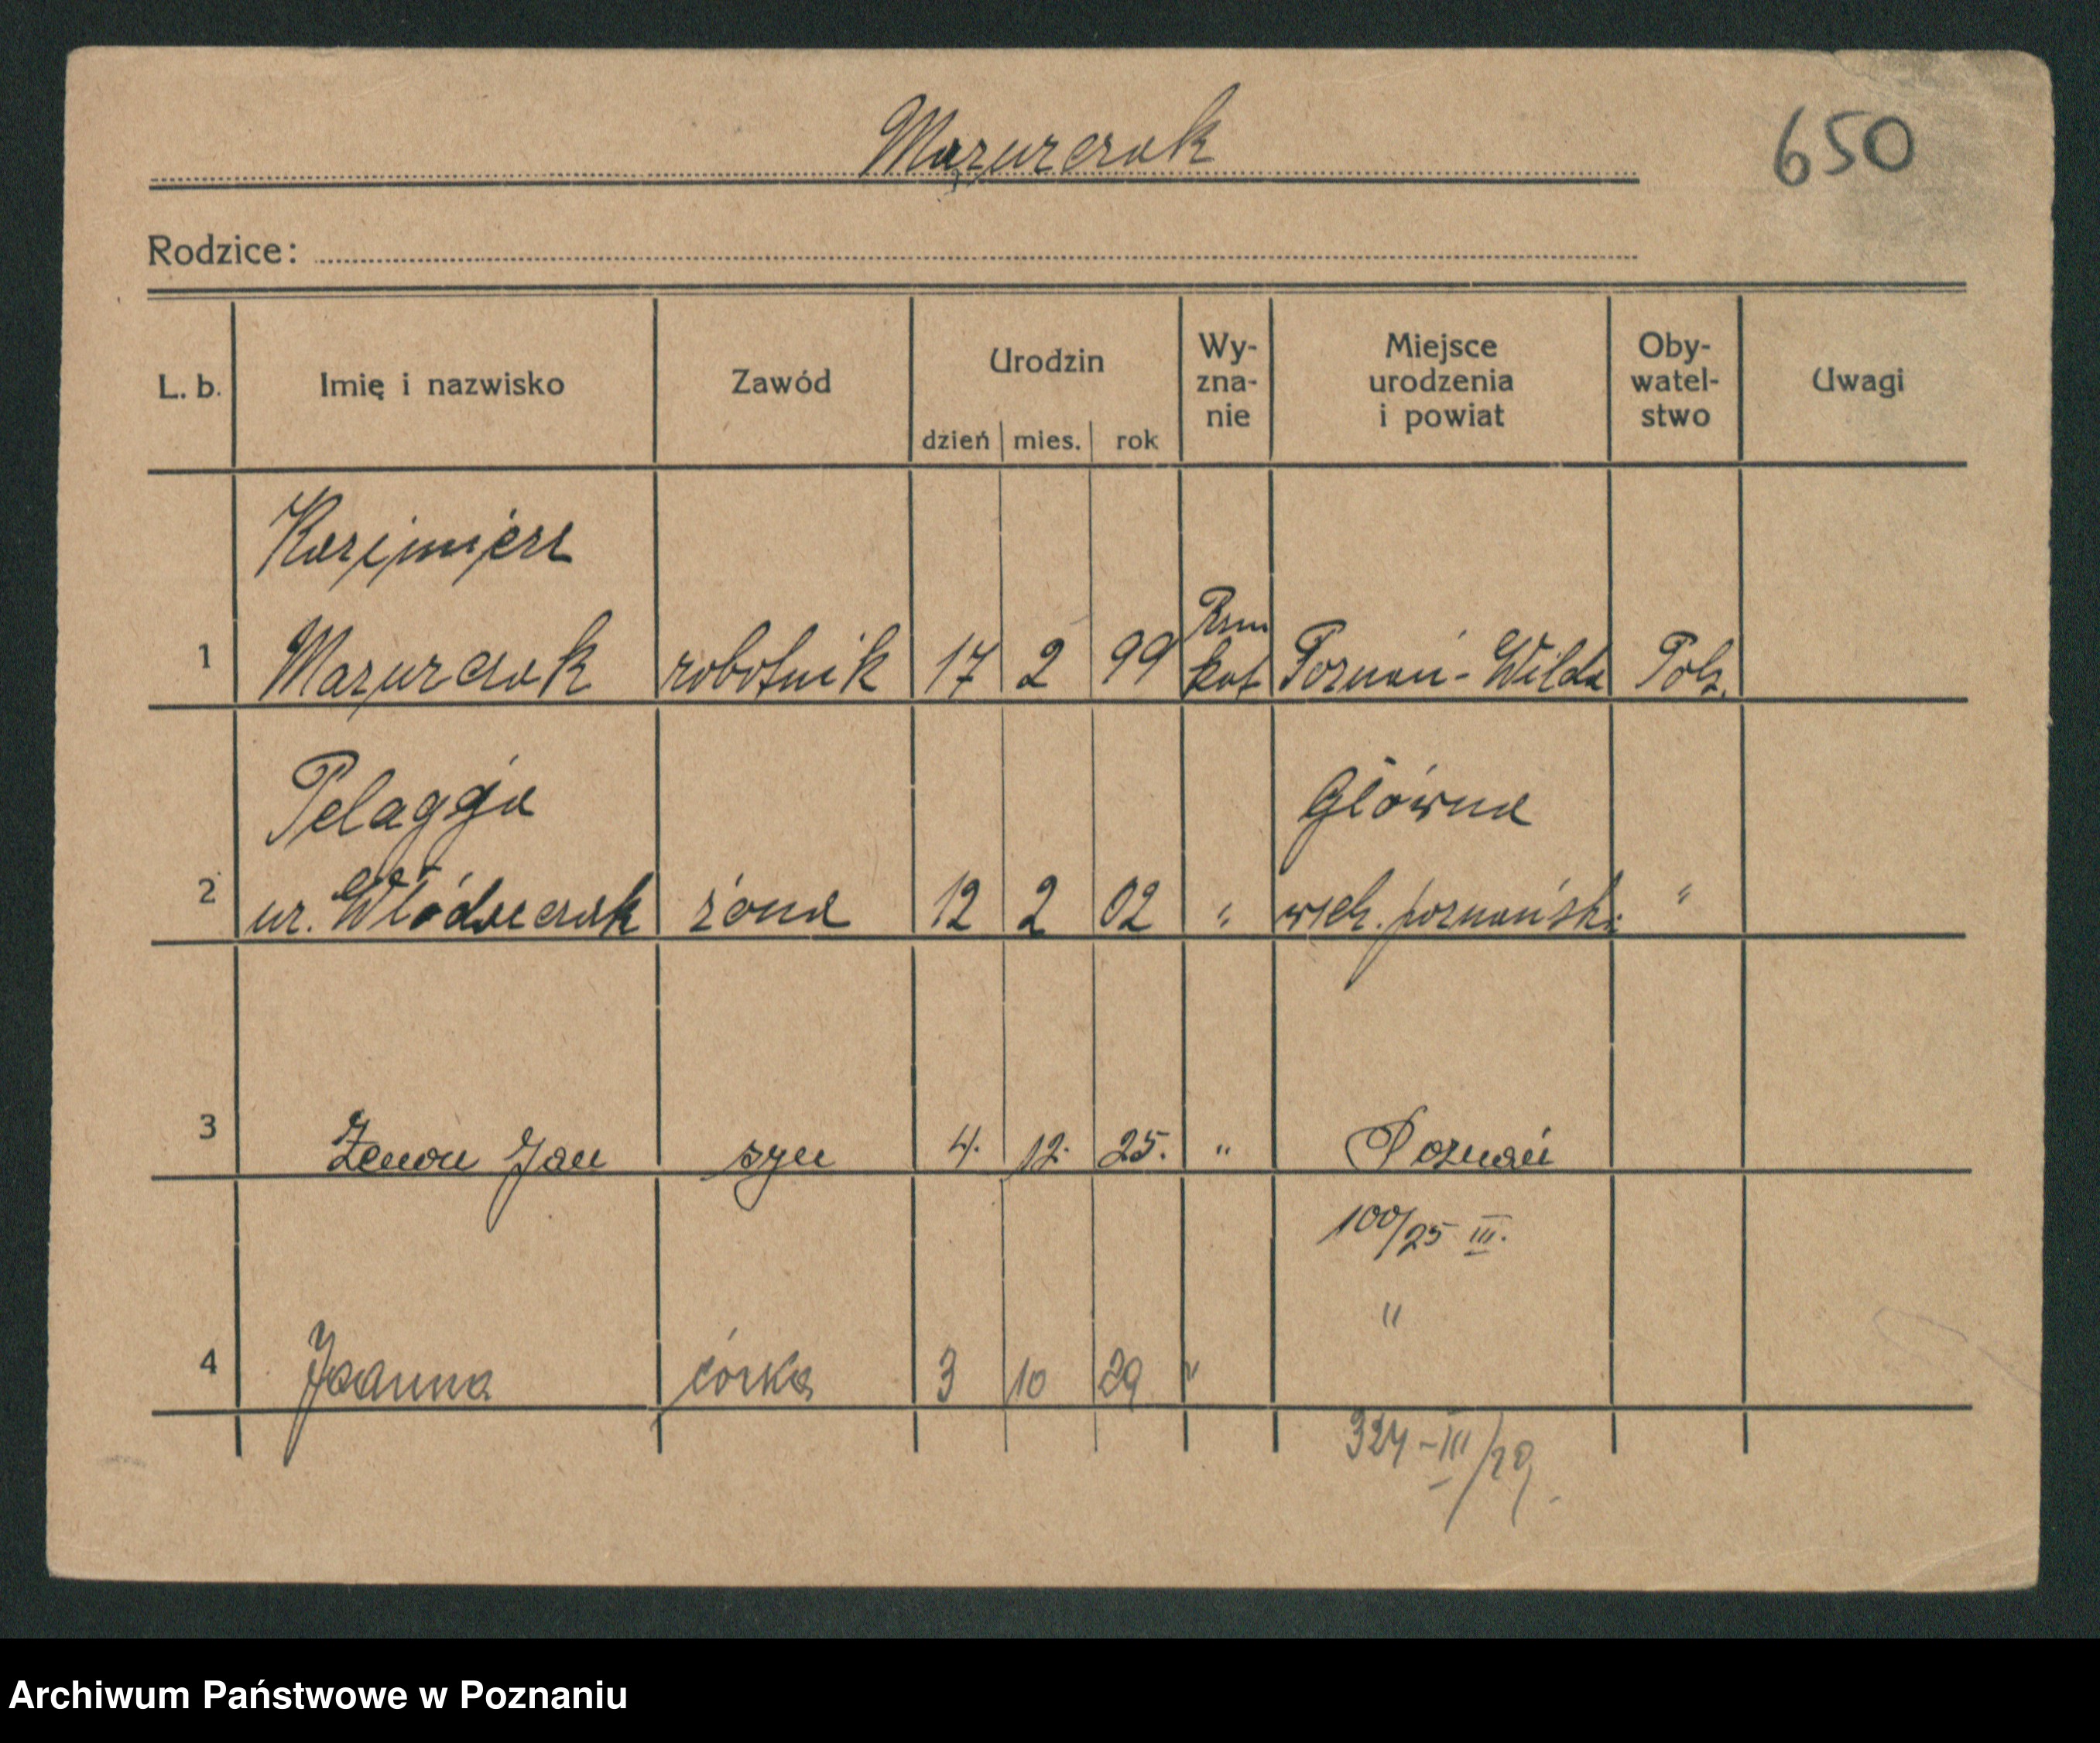 Mazurczak
650
Rodzice:
L. b.
Imię i nazwisko
Zawód
Urodzin
dzień
mies.
rok
Wy-
zna-
nie
Miejsce
urodzenia
i powiat
Oby-
watel-
stwo
Uwagi
Kazimierz
1 Mazurczak robotnik 17 2 99 Rzm kat Poznań-Wilda Pols.
Pelagja Główna
2 ur. Włódarczak żona 12 2 02 " wsch. poznański "
3 Zenon Jan syn 4. 12. 25. " Poznań
100/25 III.
"
4 Joanna córka 3 10 29 "
324-III/29.
Archiwum Państwowe w Poznaniu